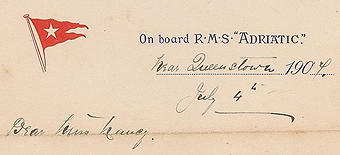 On board R·M·S· "ADRIATIC."
Near Queenstown 1907.
July 4th
Dear Miss Nancy.